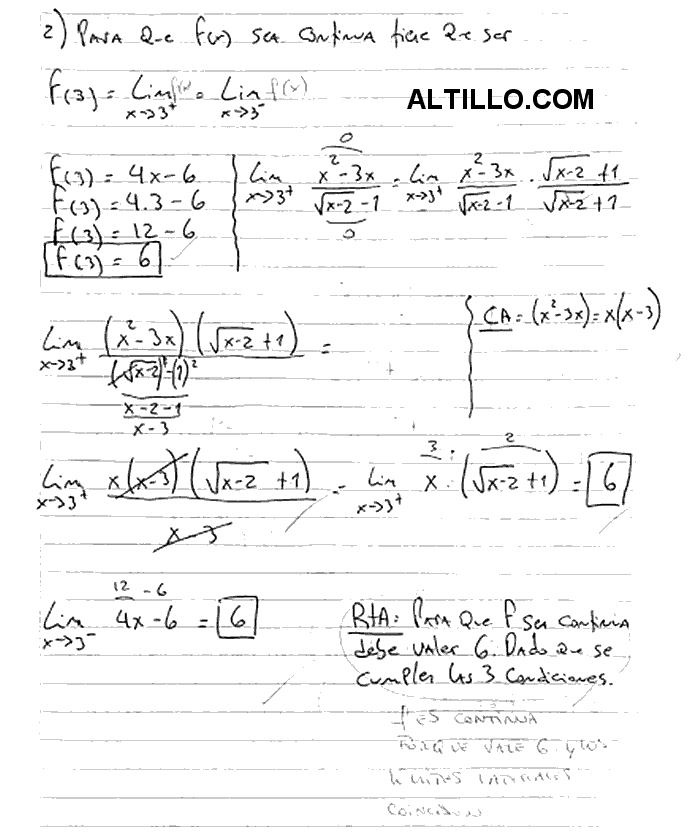 2) PARA QUE f(x) SEA CONTINUA tiene Que ser
f(3) = Lim x→3⁺ f(x) = Lim x→3⁻ f(x)
ALTILLO.COM
f(3) = 4x-6
f(3) = 4.3-6
f(3) = 12-6
f(3) = 6
Lim x→3⁺ (x²-3x)/(√(x-2) -1) = Lim x→3⁺ (x²-3x)/(√(x-2) -1) · (√(x-2) +1)/(√(x-2) +1)
0
0
CA = (x²-3x) = x(x-3)
Lim x→3⁺ (x²-3x)(√(x-2) +1) =
(√(x-2))² - (1)²
x-2-1
x-3
Lim x→3⁺ x(x-3)(√(x-2) +1)/(x-3) = Lim x→3⁺ x · (√(x-2) +1) = 6
3
2
12 - 6
Lim x→3⁻ 4x-6 = 6
RtA: PARA Que f sea continua
debe valer 6. Dado Que se
cumplen las 3 condiciones.
f ES CONTINUA
PORQUE VALE 6 y los
LIMITES LATERALES
COINCIDEN